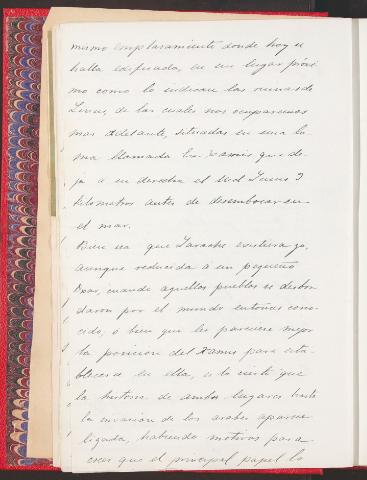 mismo emplazamiento donde hoy se
halla edificada, en un lugar próxi
mo como lo indican las ruinas de
Lixus, de las cuales nos ocuparemos
mas adelante, situadas en una lo-
ma llamada que de-
ja a su derecha el Uad Lucus 3
kilometros antes de desembocar en
el mar.
Bien sea que Larache existiera ya,
aunque reducida á un pequeño
cuando aquellos pueblos se desbor
daron por el mundo entonces cono-
cido, o bien que les pareciese mejor
la posicion del para esta-
blecerse en ella, es lo cierto que
la historia de ambos lugares hasta
la invasion de los arabes aparece
ligada, habiendo motivos para
creer que el principal papel lo